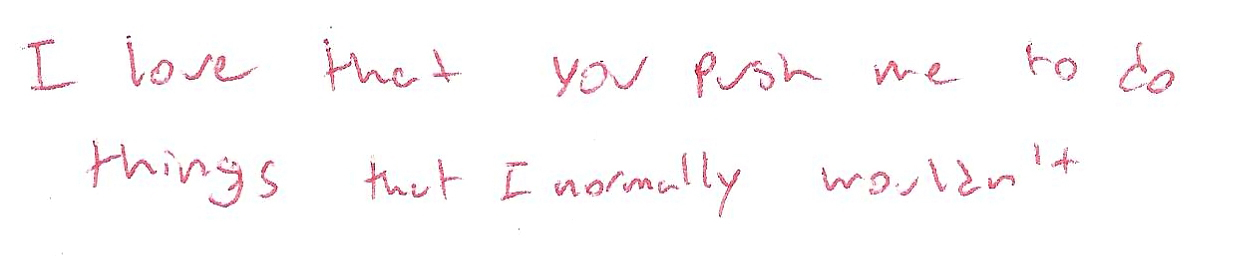 I love that you push me to do
things that I normally wouldn't